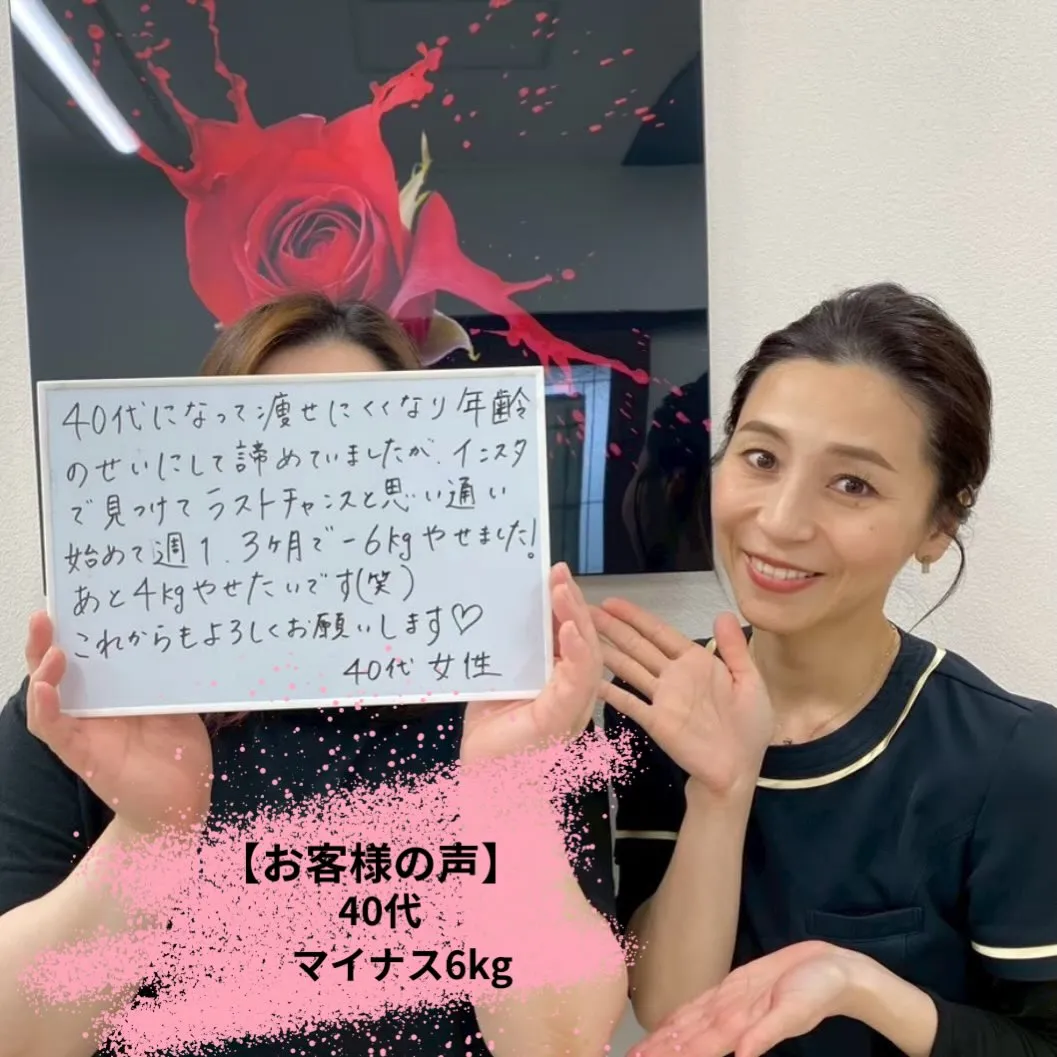 40代になって痩せにくくなり年齢
のせいにして諦めていましたが、インスタ
で見つけてラストチャンスと思い通い
始めて週1、3ヶ月で-6kgやせました!
あと4kgやせたいです(笑)
これからもよろしくお願いします♡
40代 女性
【お客様の声】
40代
マイナス6kg